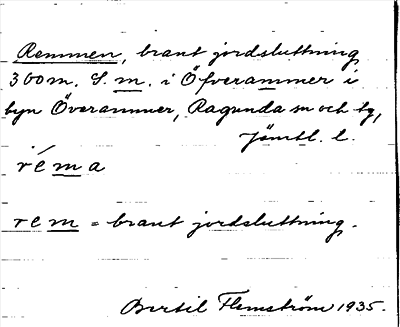 Remmen, brant jordsluttning
300 m. S. m. i Öfverammer i
byn Överammer, Ragunda sn och tg,
Jämtl. l.
réma
rem = brant jordsluttning.
Bertil Flemström 1935.